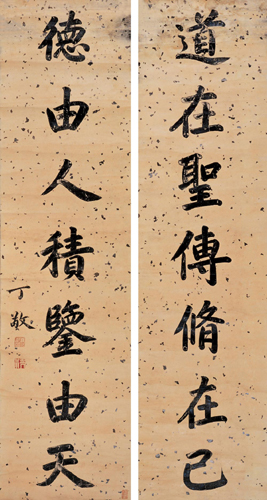 道在聖傳脩在己
德由人積鑒由天
丁敬